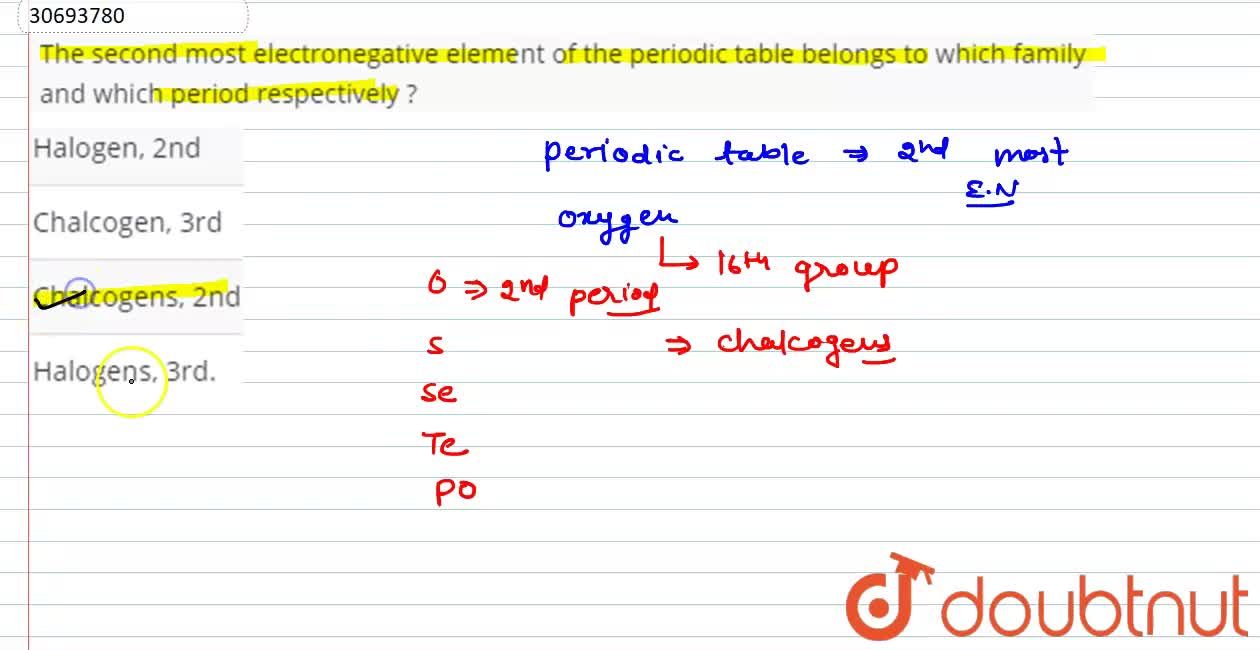 30693780
The second most electronegative element of the periodic table belongs to which family
and which period respectively ?
Halogen, 2nd
Chalcogen, 3rd
Chalcogens, 2nd
Halogens, 3rd.
periodic table ⇒ 2nd most
E.N
oxygen
↳ 16th group
O ⇒ 2nd period
S
⇒ chalcogens
Se
Te
PO
doubtnut